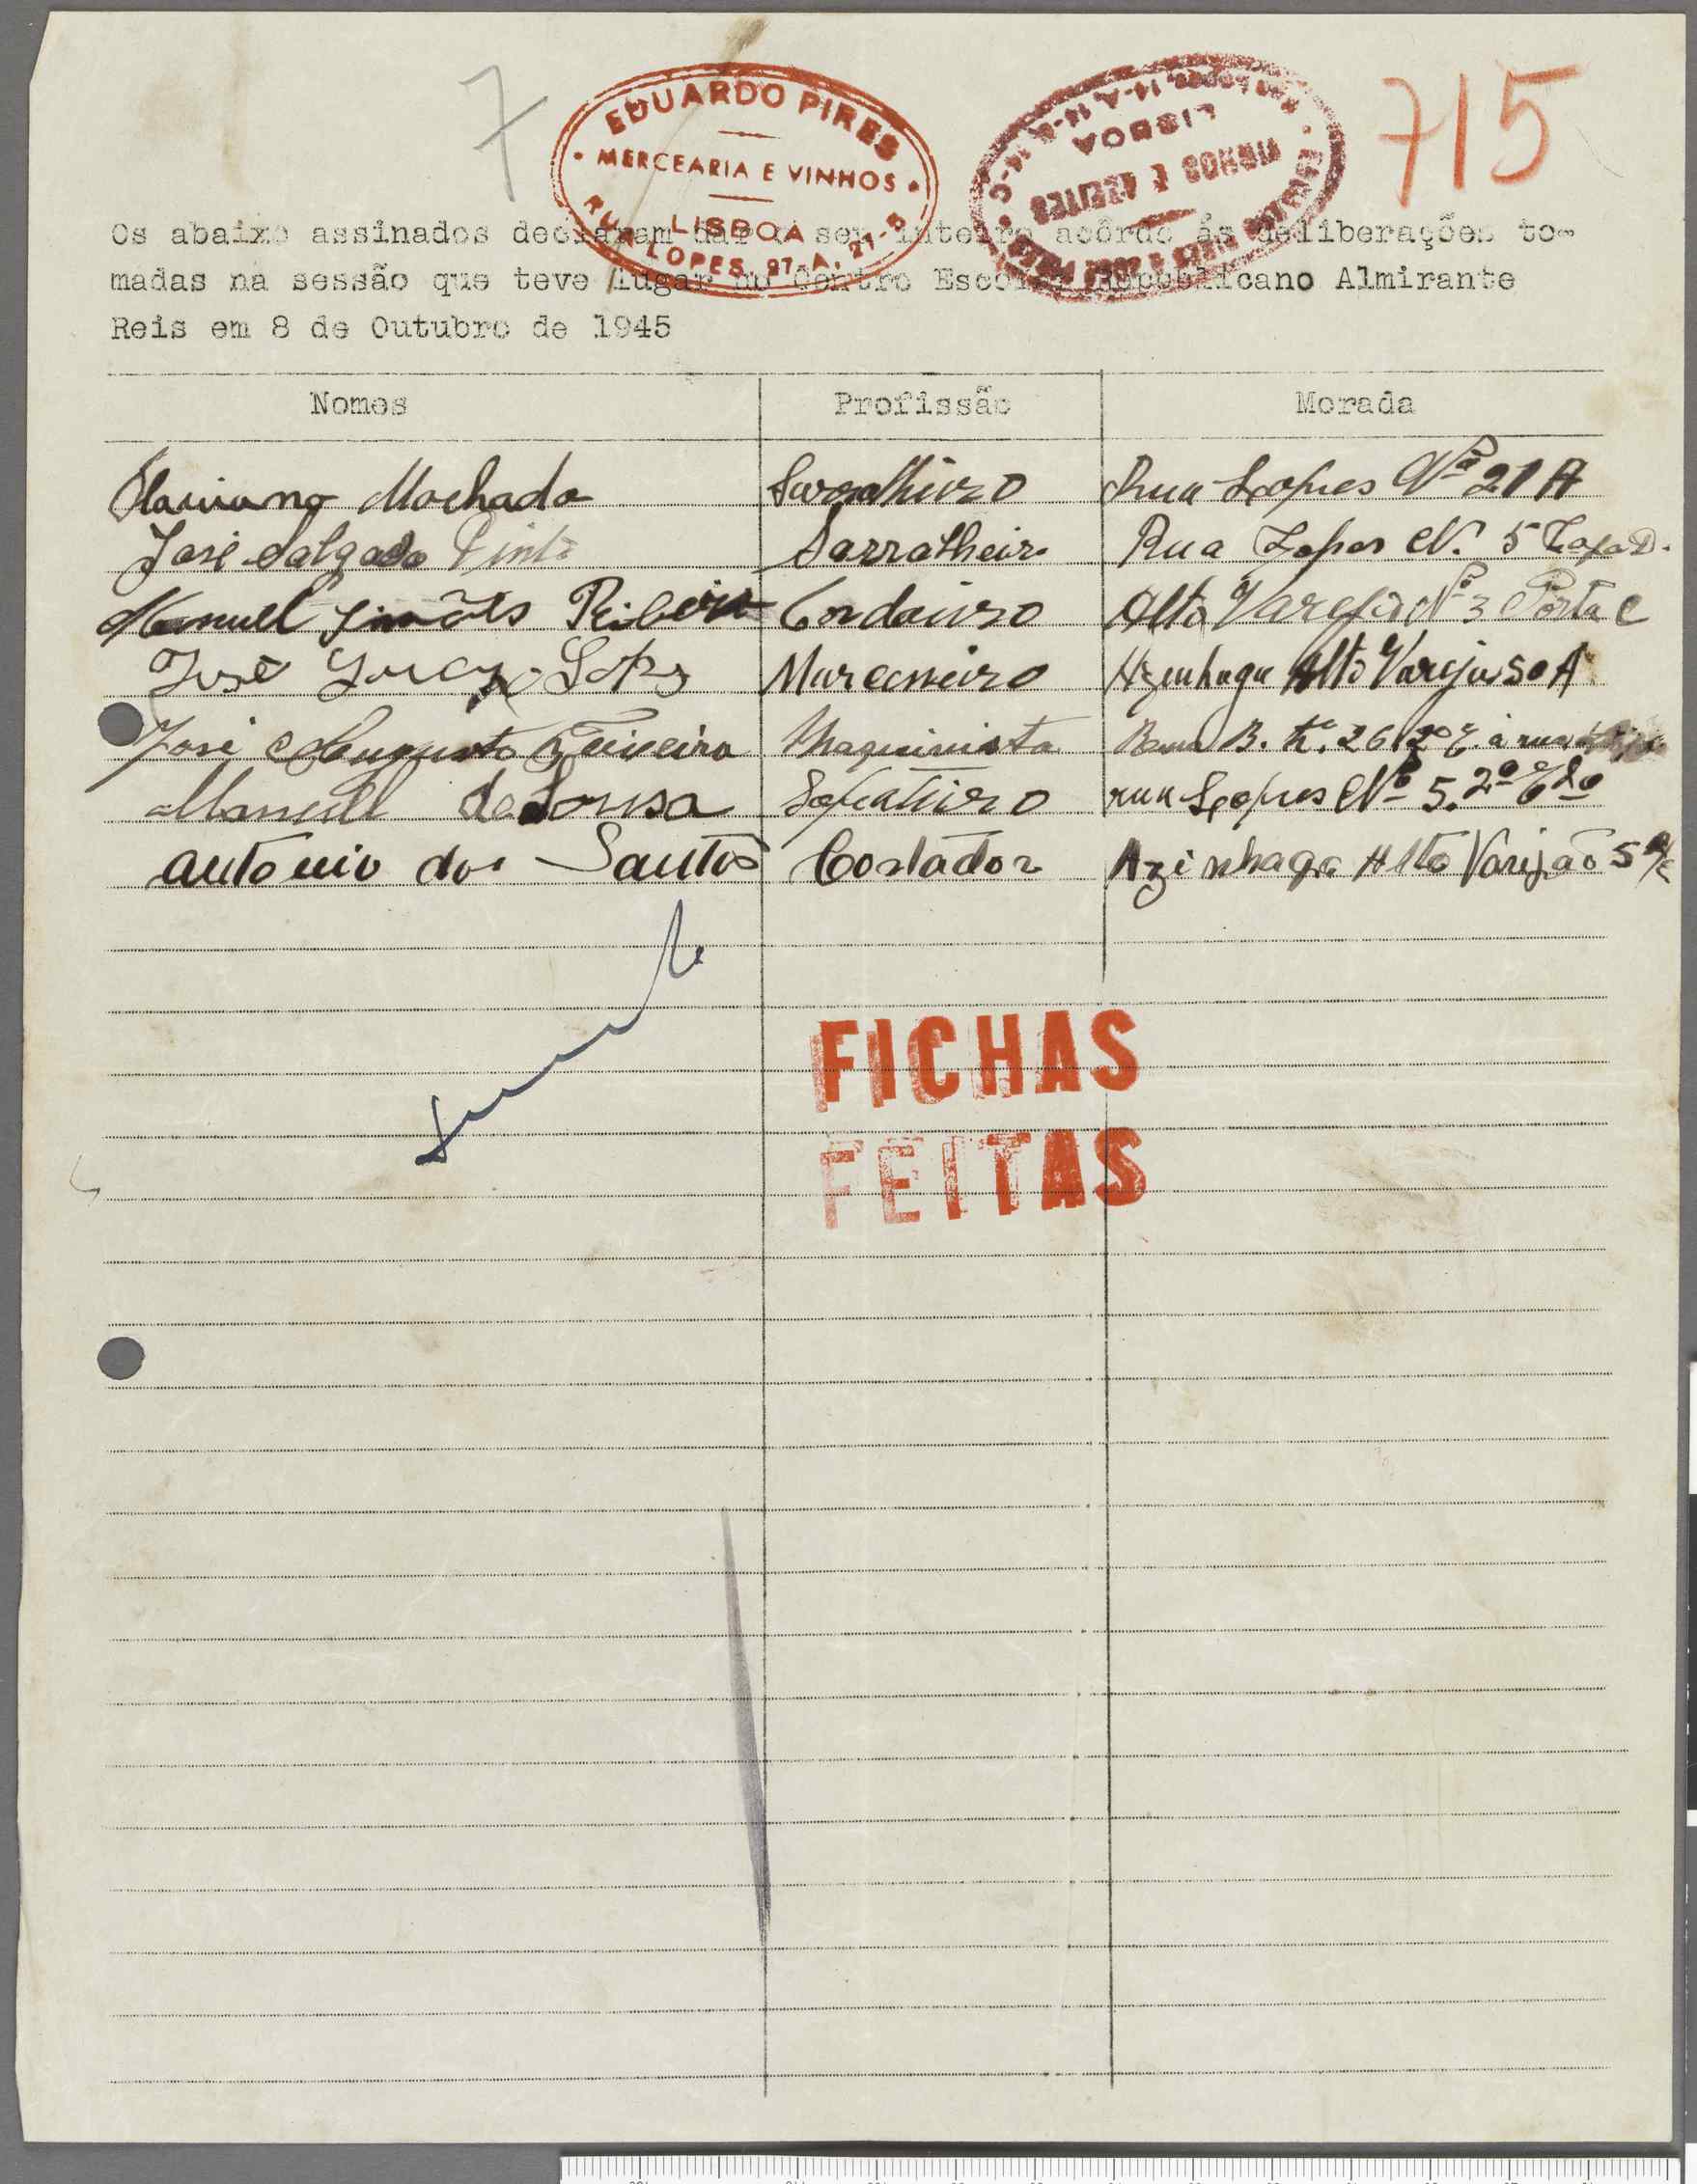 7
715
EDUARDO PIRES
MERCEARIA E VINHOS
LISBOA
RUA LOPES, 27-A, 27-B
LISBOA
VINHOS E AZEITES
Os abaixo assinados declaram dar o seu inteiro acôrdo ás deliberações to-
madas na sessão que teve lugar no Centro Escolar Republicano Almirante
Reis em 8 de Outubro de 1945
Nomes Profissão Morada
Machado Rua Lopes Nº 21 A
José Salgado Pinto Sarralheiro Rua Lopes N. 5
Manuel Simões Ribeiro Cordoeiro Alto Varejão Nº 3 Porta C
José Lopes Marceneiro Azinhaga Alto Varejão 50 A
José Augusto Teixeira Maquinista B. nº. 26 2º E. à rua
Manuel de Sousa Sapateiro rua Lopes Nº 5. 2º Edo
António dos Santos Cortador Azinhaga Alto Varijão 5
FICHAS
FEITAS